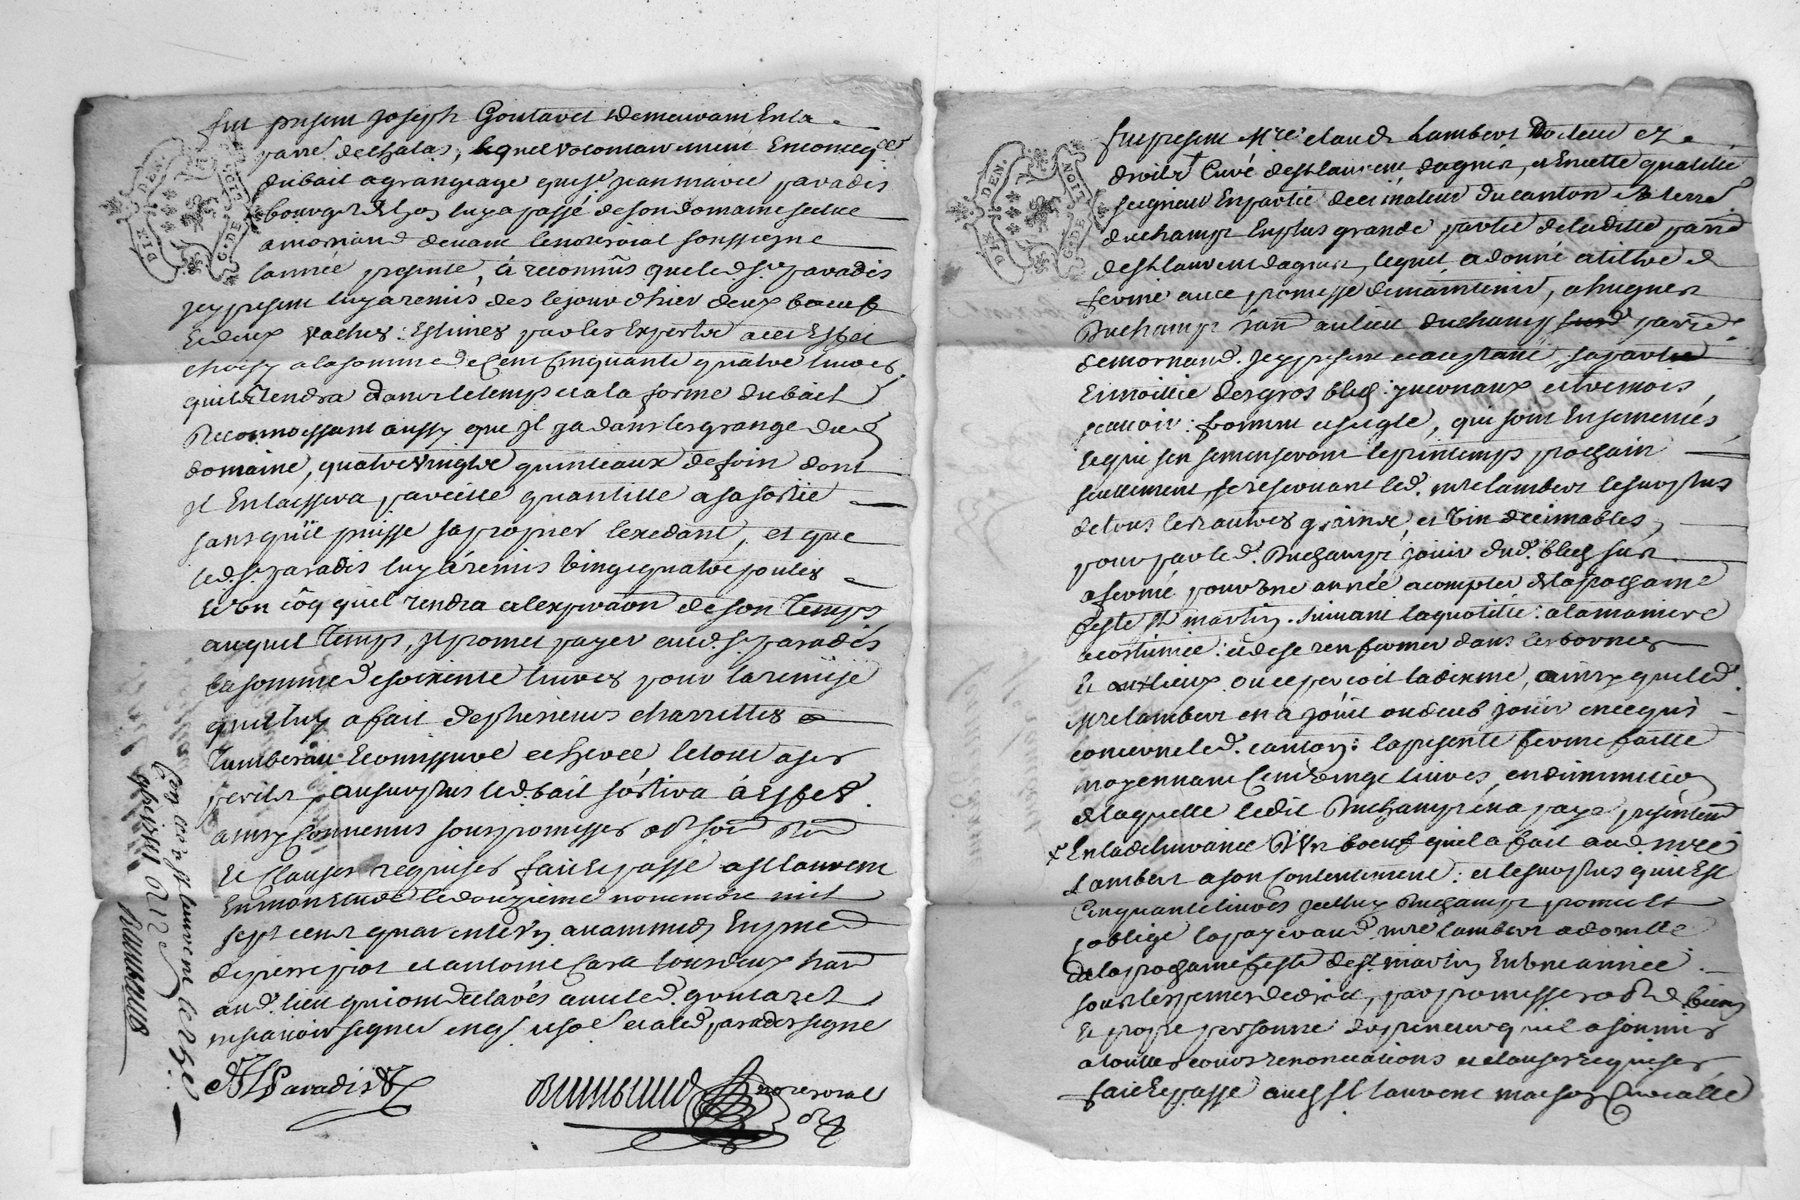 fut present Joseph Goutaret demeurant En la
parr^e dechalas, lequel volontairement En conseq^ce
du bail a grangeage que s^r Jean marie paradis
bourg^s de lyon luy a passé de son domaine scitue
a mornand devant le no^re roial soussigne
lannée presente, à reconnus que led. s^r paradis
jcy present luy a remis des le jour d'hier deux boeufs
Et deux vaches: Estimés par les Experts a cet Effet
choisy a la somme de Cent Cinquante quatre livres
quil Rendra dans le temps et a la forme du bail
Reconnoissant aussy que Jl ya dans les grange dud
domaine, quatre vingts quinteaux de foin dont
Jl En laissera pareille quantitté a sa sortie
sans quil puisse saproprier lexedant, et que
led. s^r paradis luy a remis vingt quatre poules
et un coq quil rendra a lexpiraôn de son Temps
auquel Temps, Jl promet payer aud. s^r paradis
la somme de soixente livres pour la remise
quil luy a fait de plusieurs charrettes
Tumberau
perils, au surplus led. bail sortira à Effet.
ainsy Convenus sous promesses obl^s
Et Clauses requises fait Et passé a S^t laurent
En mon Etude le douzieme novembre mil
sept cent quarente avant midy En pnce
de pierre piot et antoine Cara tous deux
aud. lieu qui ont declarés avec led. goutaret
ne scavoir signer enq^s et led. paradis signe
Paradis
no^re roial
Con^llé a S^t laurent le
reçu
fut present M^re claude Lambert Docteur ez
droits Curé de S^t laurent dagnis, et En cette qualitté
seigneur En partie decimateur du canton et terre
duchamp En plus grande partie de la ditte parr^e
de S^t laurent dagnis, lequel a donné a tiltre de
ferme avec promesse de maintenir, a hugues
Duchamp au lieu duchamp parr^e
de mornand. Jcy present et acceptant, sa part
Et moittié des gros bleds: yvernaux et tremois
scavoir: froment et seigle, qui sont Ensemencés,
Et qui s'en semenseront le printemps prochain
seulement, se reservant led. m^re lambert le surplus
de tous les autres grains, et vin decimables,
pour par led. Duchamp, jouir dud. bled sus
afermé pour une année a compter de la prochaine
feste S^t martin. suivant la quotitté: a la maniere
acostumée: et de se renfermer dans les bornes
Et lieux. ou se percoit la dixme, ainsy que led.
M^re lambert en a jouit ou deub jouir en ce qui
concerne led. canton: la presente ferme faitte
moyennant Cent vingt livres, en diminution
de laquelle ledit Duchamp en a payé presentem^t
En la delivrance d'Un boeuf quil a fait aud. m^re
Lambert a son Contentement: et le surplus qui Est
Cinquante livres Jcelluy Duchamp promet Et
soblige la payer aud. m^re lambert a domicille
de la prochaine feste de S^t martin En une année
sous les peines de droit, par promesses obl^on de biens
Et propre personne quil a soumis
a toutes cours renonciations et clauses requises
fait Et passé aud S^t laurent maison Curialle